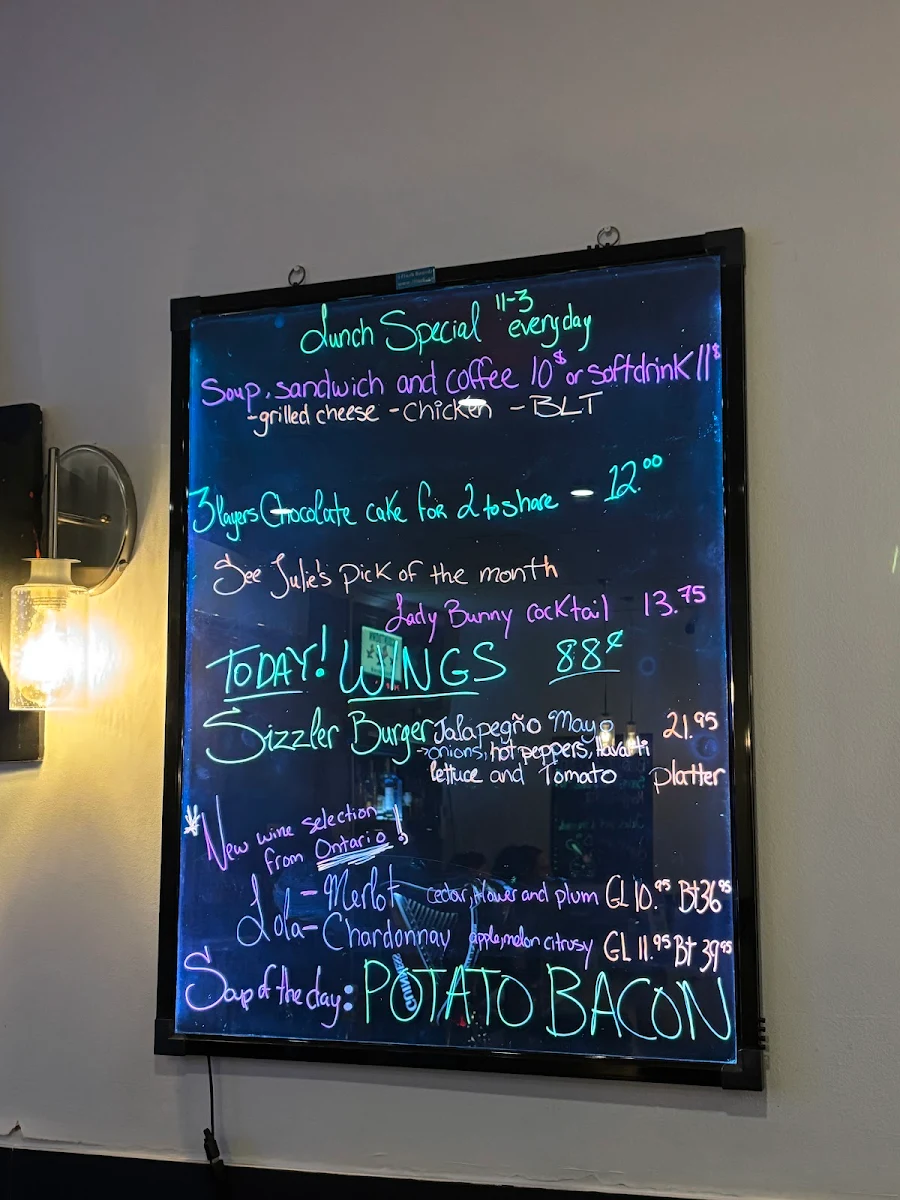 Lunch Special 11-3 everyday
Soup, sandwich and coffee 10$ or softdrink 11$
-grilled cheese - chicken - BLT
3 layers Chocolate cake for 2 to share - 12.00
See Julie's pick of the month
Lady Bunny cocktail 13.75
TODAY! WINGS 88¢
Sizzler Burger Jalapegño Mayo 21.95
→onions, hot peppers, Havarti
lettuce and Tomato platter
*New wine selection
from Ontario!
Lola - Merlot cedar, flower and plum GL 10.95 Bt 36.95
Lola - Chardonnay apple, melon citrusy GL 11.95 Bt 39.95
Soup of the day: POTATO BACON